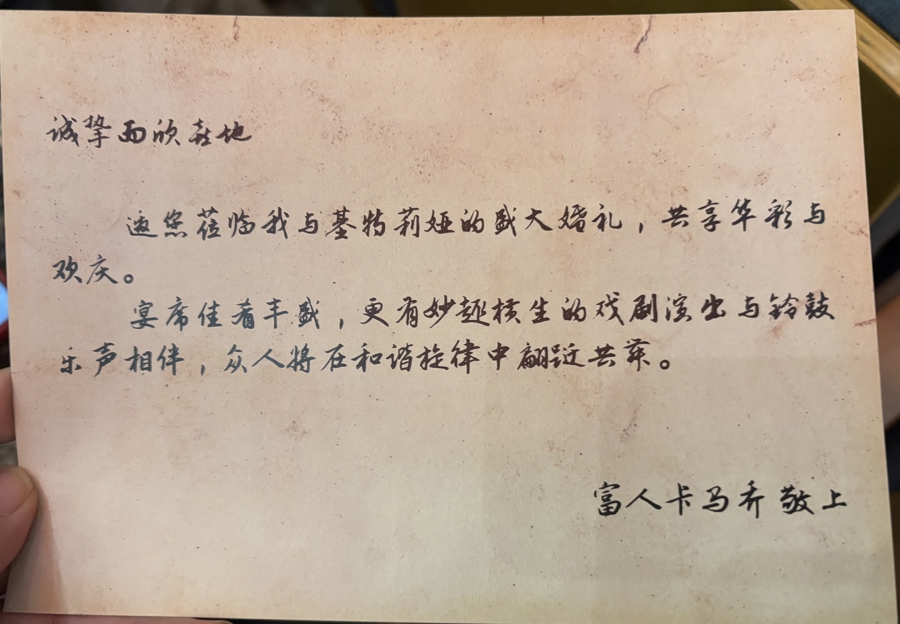 诚挚而欣喜地
邀您莅临我与基特莉娅的盛大婚礼，共享华彩与
欢庆。
宴席佳肴丰盛，更有妙趣横生的戏剧演出与铃鼓
乐声相伴，众人将在和谐旋律中翩跹共舞。
富人卡马乔 敬上